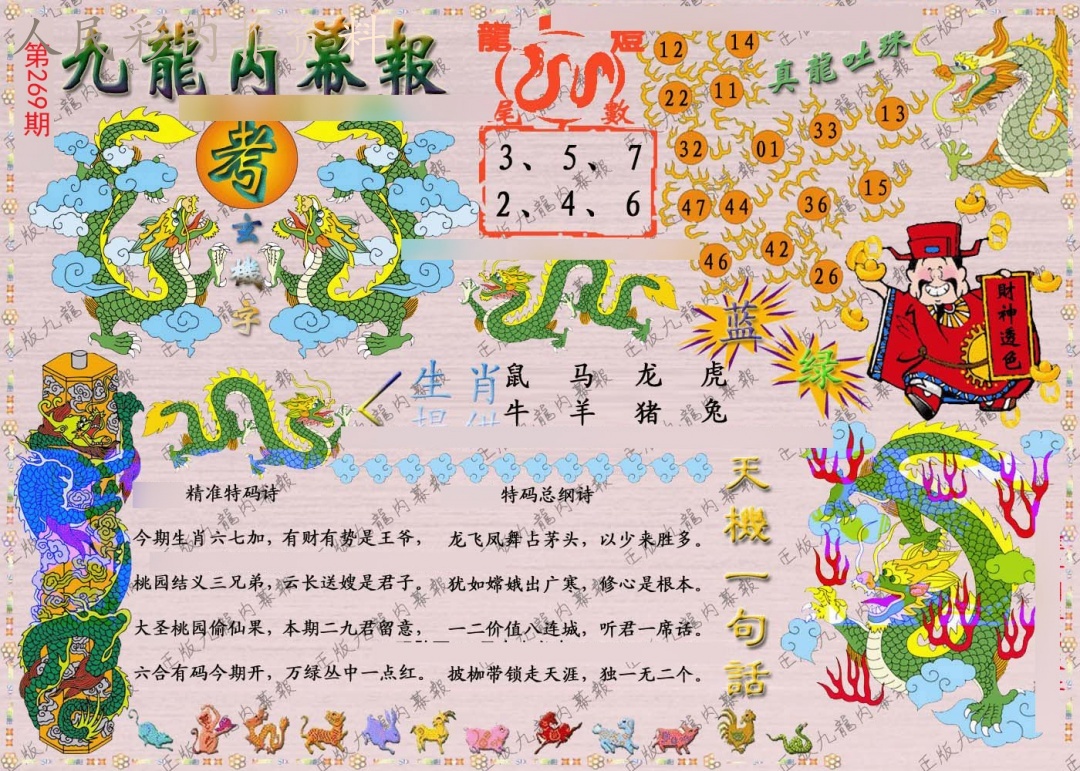 人民彩
第269期
九龍内幕報
考
玄機字
龍
尾數
3、5、7
2、4、6
12
14
22
11
13
33
32
01
15
47
44
36
42
46
26
真龍吐珠
財神透色
蓝
绿
生肖
鼠 马 龙 虎
牛 羊 猪 兔
精准特码诗
今期生肖六七加，有财有势是王爷，
桃园结义三兄弟，云长送嫂是君子。
大圣桃园偷仙果，本期二九君留意，
六合有码今期开，万绿丛中一点红。
特码总纲诗
龙飞凤舞占茅头，以少来胜多。
犹如嫦娥出广寒，修心是根本。
一二价值八连城，听君一席话。
披枷带锁走天涯，独一无二个。
天機一句話
正版九龍内幕報